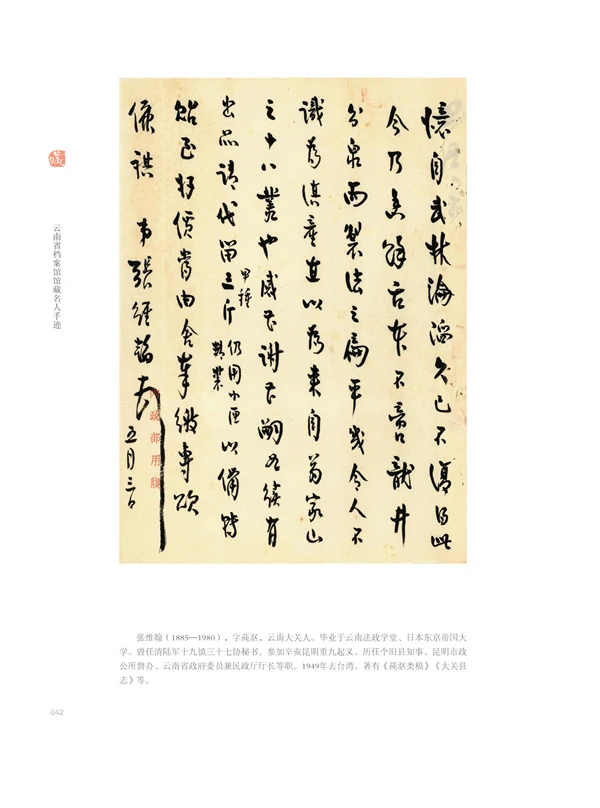 憶自武林淪陷久已不復得此
今乃香舌本不啻龍井
分泉而製法之扁平幾令人不
識為滇產直以為来自翁家山
之十八叢也感甚謝甚嗣后續有
出品請代留三斤甲種仍用小匣裝以備
貽至好價當由舍奉繳專頌
儷祺 弟張維翰 五月三日
政部用牋
藏
云南省档案馆馆藏名人手迹
张维翰（1885—1980），字莼沤，云南大关人。毕业于云南法政学堂、日本东京帝国大
学。曾任清陆军十九镇三十七协秘书。参加辛亥昆明重九起义。历任个旧县知事、昆明市政
公所督办、云南省政府委员兼民政厅厅长等职。1949年去台湾。著有《莼沤类稿》《大关县
志》等。
042